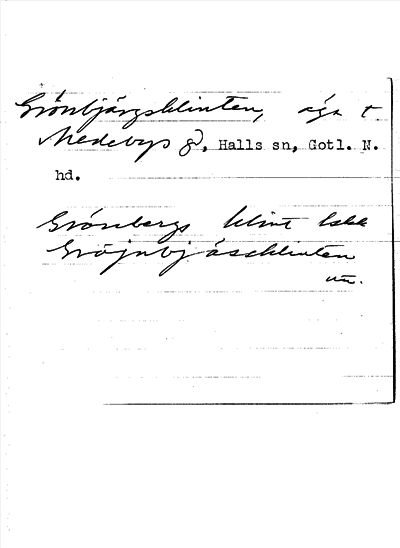 Grönbjärgsklinten, äga t
Medebys g, Halls sn, Gotl. N.
hd.
Grönbergs klint
Gröjnbjässklinten